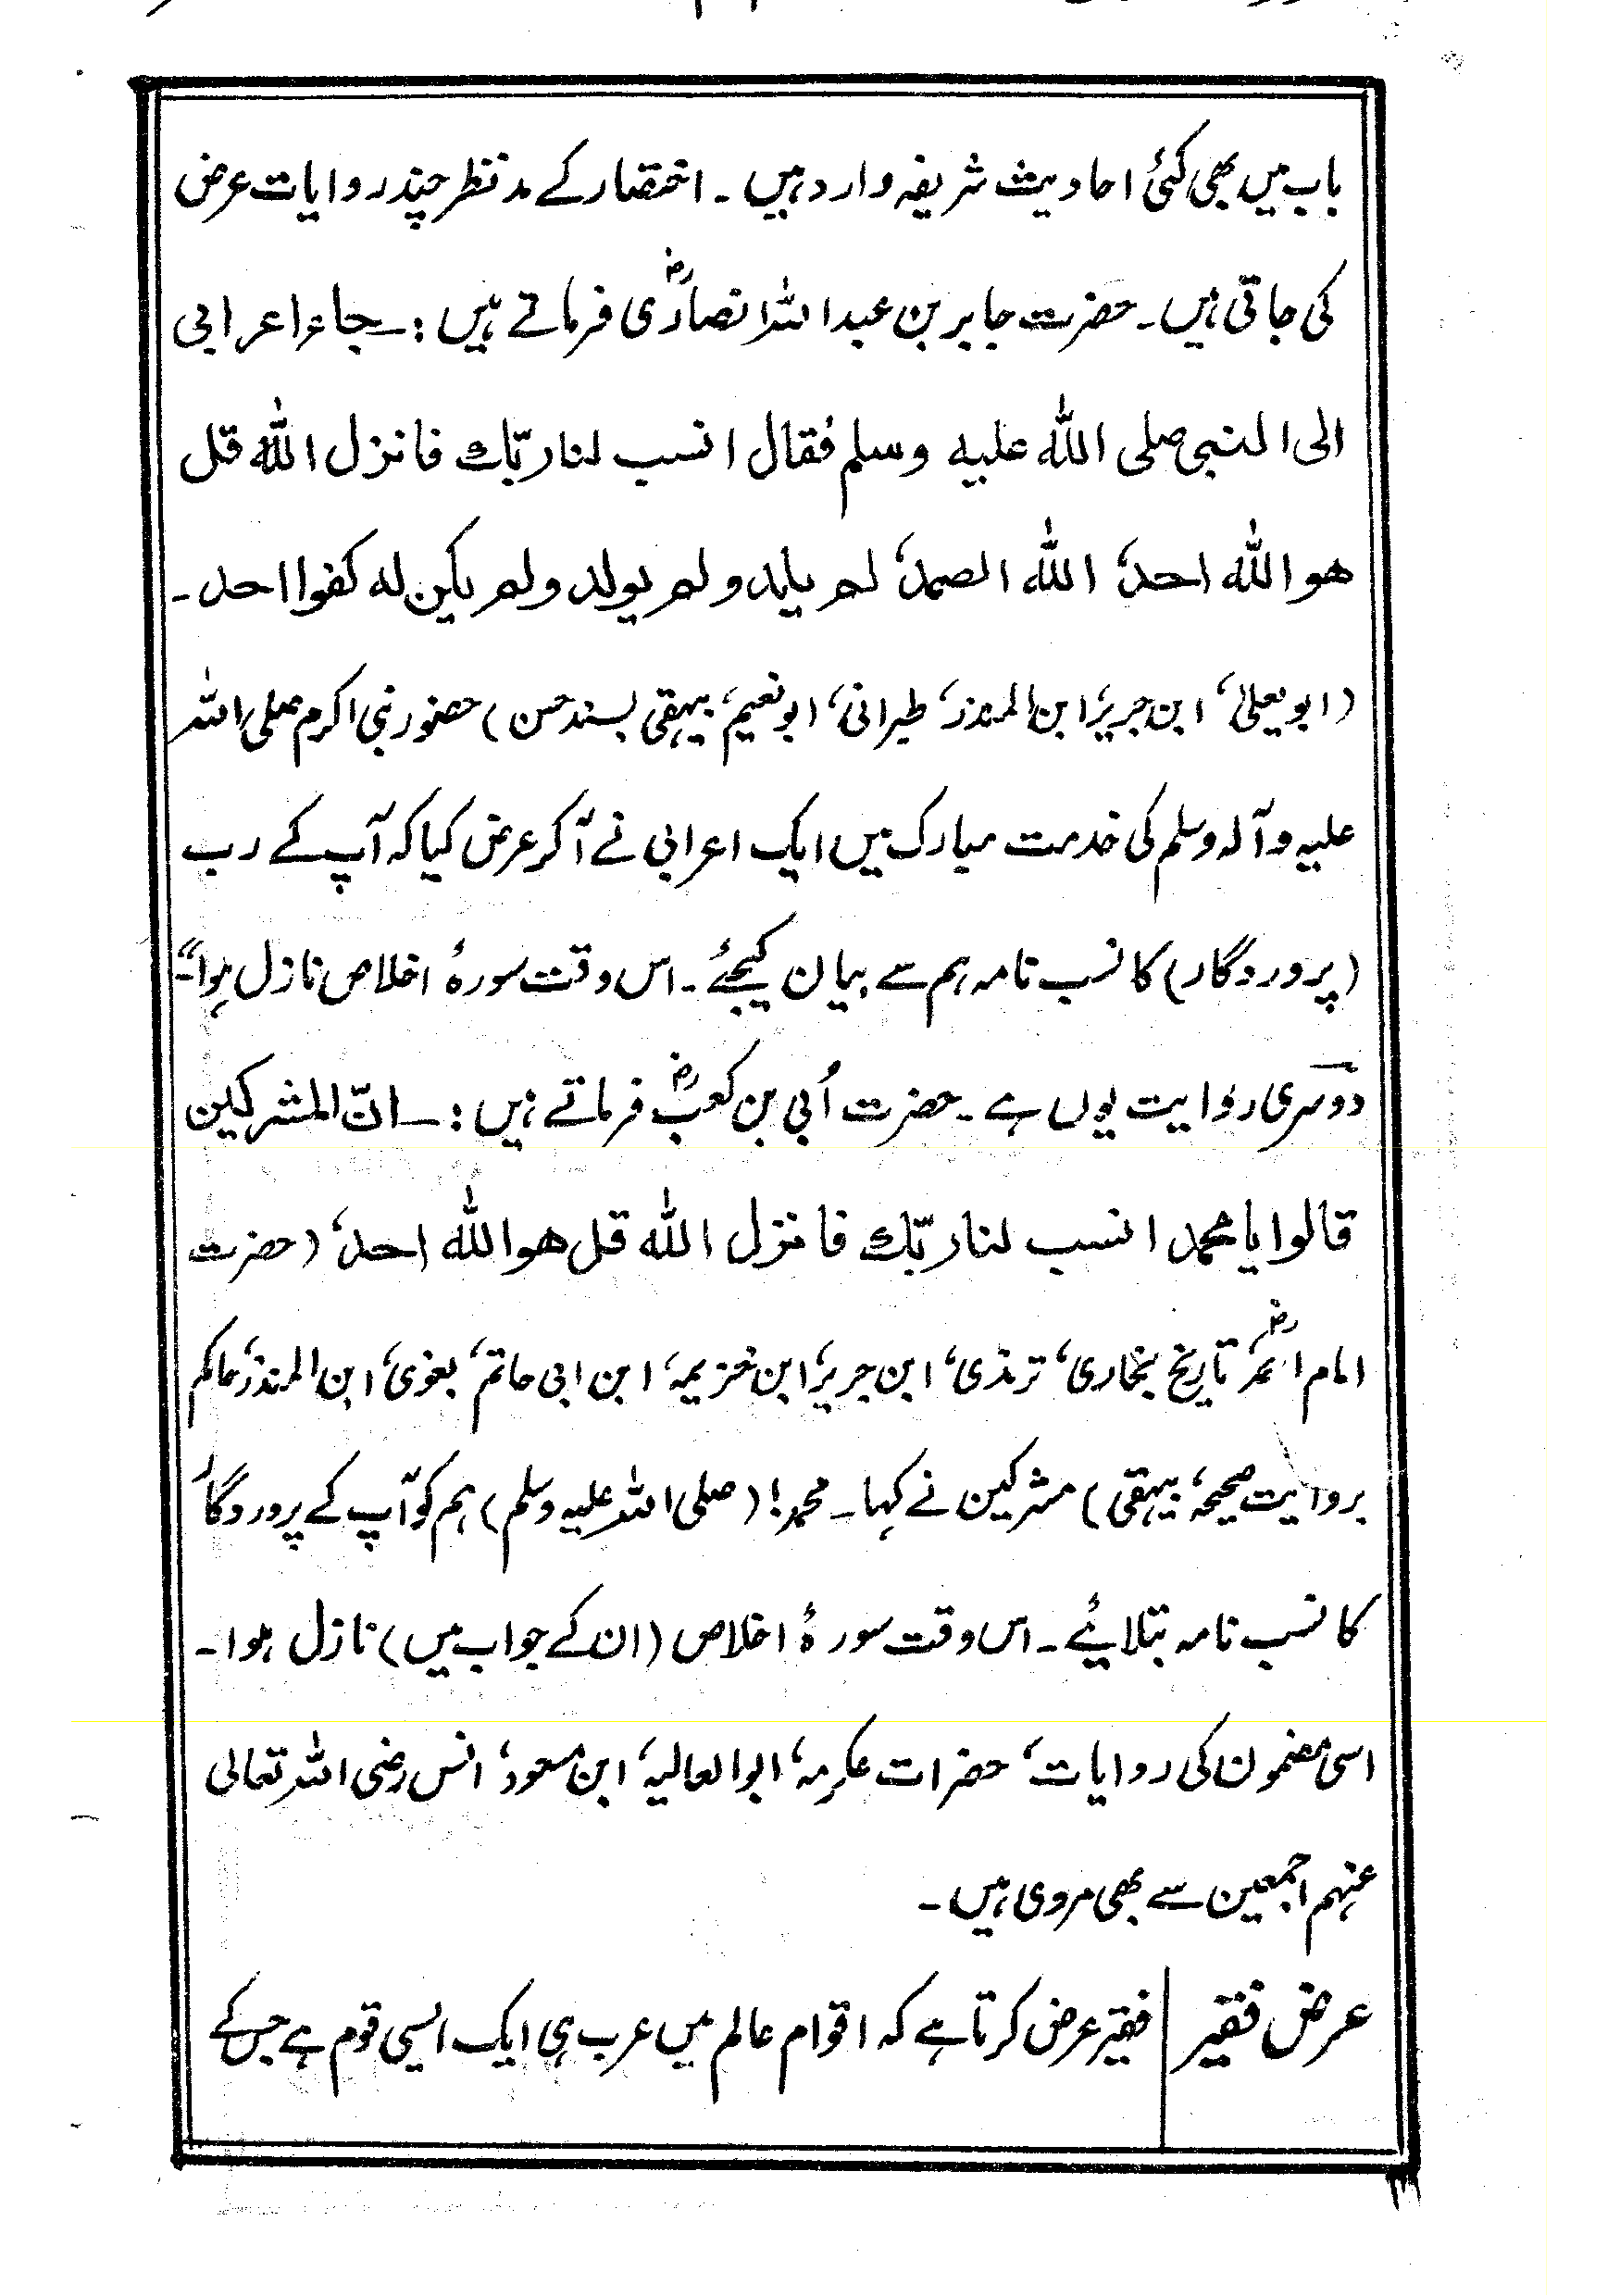 باب میں بھی کئی احادیث شریفہ وارد ہیں ۔ اختصار کے مدنظر چند روایات عرض
کی جاتی ہیں ۔ حضرت جابر بن عبداللہ انصاریؓ فرماتے ہیں :۔ جاء اعرابی
الی النبی صلی اللہ علیہ وسلم فقال انسب لنا ربّک فانزل اللہ قل
ھو اللہ احد، اللہ الصمد، لم یلد ولم یولد ولم یکن لہ کفوا احد ۔
(ابو یعلیٰ، ابن جریر، ابن المنذر، طبرانی، ابو نعیم، بیہقی بسند حسن) حضور نبی اکرم صلی اللہ
علیہ وآلہ وسلم کی خدمت مبارک میں ایک اعرابی نے آکر عرض کیا کہ آپ کے رب
(پروردگار) کا نسب نامہ ہم سے بیان کیجئے ۔ اس وقت سورۂ اخلاص نازل ہوا"۔
دوسری روایت یوں ہے ۔ حضرت اُبی بن کعبؓ فرماتے ہیں :۔ انّ المشرکین
قالوا یا محمد انسب لنا ربّک فانزل اللہ قل ھو اللہ احد، (حضرت
امام احمدؓ، تاریخ بخاری، ترمذی، ابن جریر، ابن خزیمہ، ابن ابی حاتم، بغوی، ابن المنذر، حاکم
بروایت صحیحہ، بیہقی) مشرکین نے کہا ۔ محمد! (صلی اللہ علیہ وسلم) ہم کو آپ کے پروردگار
کا نسب نامہ بتلائیے ۔ اس وقت سورۂ اخلاص (ان کے جواب میں) نازل ہوا ۔
اسی مضمون کی روایات، حضرات عکرمہ، ابوالعالیہ، ابن مسعود، انس رضی اللہ تعالی
عنہم اجمعین سے بھی مروی ہیں ۔
عرض فقیر | فقیر عرض کرتا ہے کہ اقوام عالم میں عرب ہی ایک ایسی قوم ہے جس کے